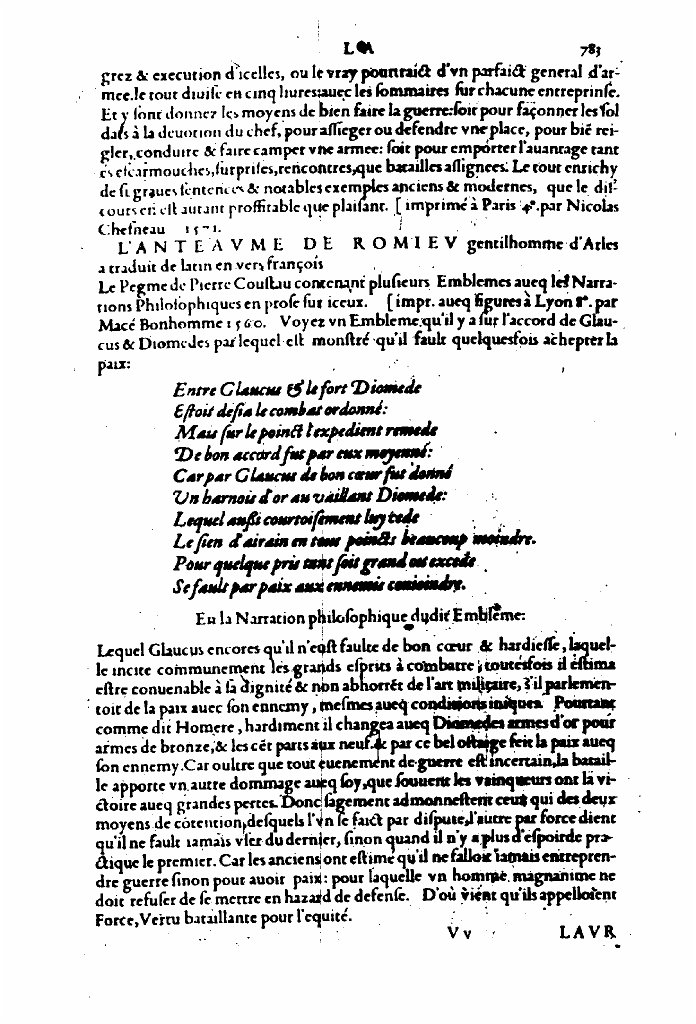 LA 783
grez & execution d'icelles, ou le vray pourtraict d'vn parfaict general d'ar-
mee.le tout diuise en cinq liures:auec les sommaires sur chacune entreprinse.
Et y sont donnez les moyens de bien faire la guerre:soit pour façonner les sol
dats à la deuotion du chef, pour assieger ou defendre vne place, pour biē rei-
gler, conduire & faire camper vne armee: soit pour emporter l'auantage tant
es escarmouches, surprises, rencontres, que batailles assignees. Le tout enrichy
de si graues sentences & notables exemples anciens & modernes, que le dis-
cours en est autant proffitable que plaisant. [imprimé à Paris 4°. par Nicolas
Chesneau 1571.
L'ANTEAVME DE ROMIEV gentilhomme d'Arles
a traduit de latin en vers françois
Le Pegme de Pierre Coustau contenant plusieurs Emblemes aueq les Narra-
tions Philosophiques en prose sur iceux. [impr. aueq figures à Lyon 8°. par
Macé Bonhomme 1560. Voyez vn Embleme qu'il y a sur l'accord de Glau-
cus & Diomedes par lequel est monstré qu'il fault quelquesfois achepter la
paix:
Entre Glaucus & le fort Diomede
Estoit desia le combat ordonné:
Mais sur le poinct l'expedient remede
De bon accord fut par eux moyenné:
Car par Glaucus de bon cœur fut donné
Un harnois d'or au vaillant Diomede:
Lequel aussi courtoisement luy cede
Le sien d'airain en tous poincts beaucoup moindre.
Pour quelque pris tant soit grand ou excede
Se fault par paix aux ennemis conioindre.
En la Narration philosophique dudit Embleme:
Lequel Glaucus encores qu'il n'eust faulte de bon cœur & hardiesse, laquel-
le incite communement les grands esprits à combatre; toutesfois il estima
estre conuenable à sa dignité & non abhorrēt de l'art militaire, s'il parlemen-
toit de la paix auec son ennemy, mesmes aueq conditions iniques. Pourtant
comme dit Homere, hardiment il changea aueq Diomedes armes d'or pour
armes de bronze, & les cēt parts aux neuf: & par ce bel ostaige feit la paix aueq
son ennemy. Car oultre que tout euenement de guerre est incertain, la batail-
le apporte vn autre dommage aueq soy, que souuent les vainqueurs ont la vi-
ctoire aueq grandes pertes. Donc sagement admonnestent ceux qui des deux
moyens de cōtention, desquels l'vn se faict par dispute, l'autre par force dient
qu'il ne fault iamais vser du dernier, sinon quand il n'y a plus d'espoir de pra-
ctique le premier. Car les anciens ont estimé qu'il ne falloit iamais entrepren-
dre guerre sinon pour auoir paix: pour laquelle vn homme magnanime ne
doit refuser de se mettre en hazard de defense. D'où vient qu'ils appelloient
Force, Vertu bataillante pour l'equité.
Vv LAVR